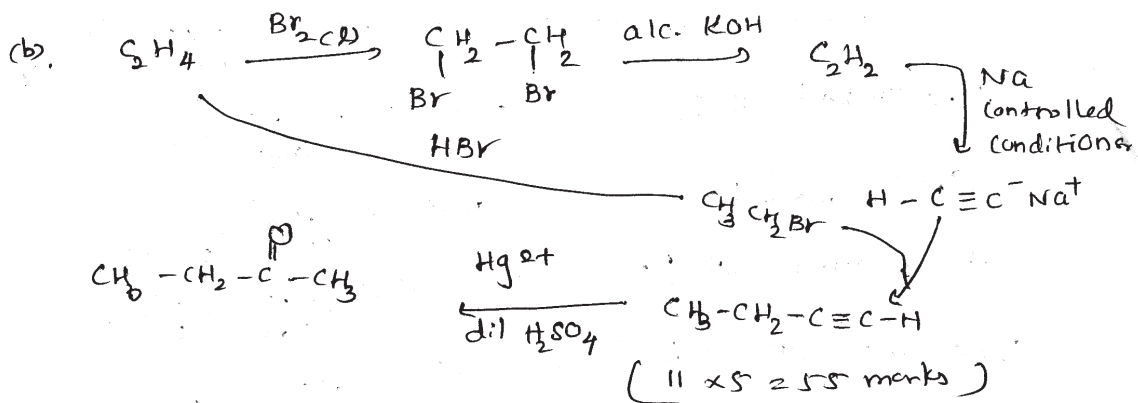 (b). C2H4 Br2(l) → CH2 – CH2 alc. KOH → C2H2
Br Br
Na
controlled
conditions
HBr
CH3 CH2 Br H – C ≡ C⁻ Na⁺
O
CH3 – CH2 – C – CH3 Hg2+ dil H2SO4 ← CH3-CH2-C ≡ C-H
(11 x5 = 55 marks)